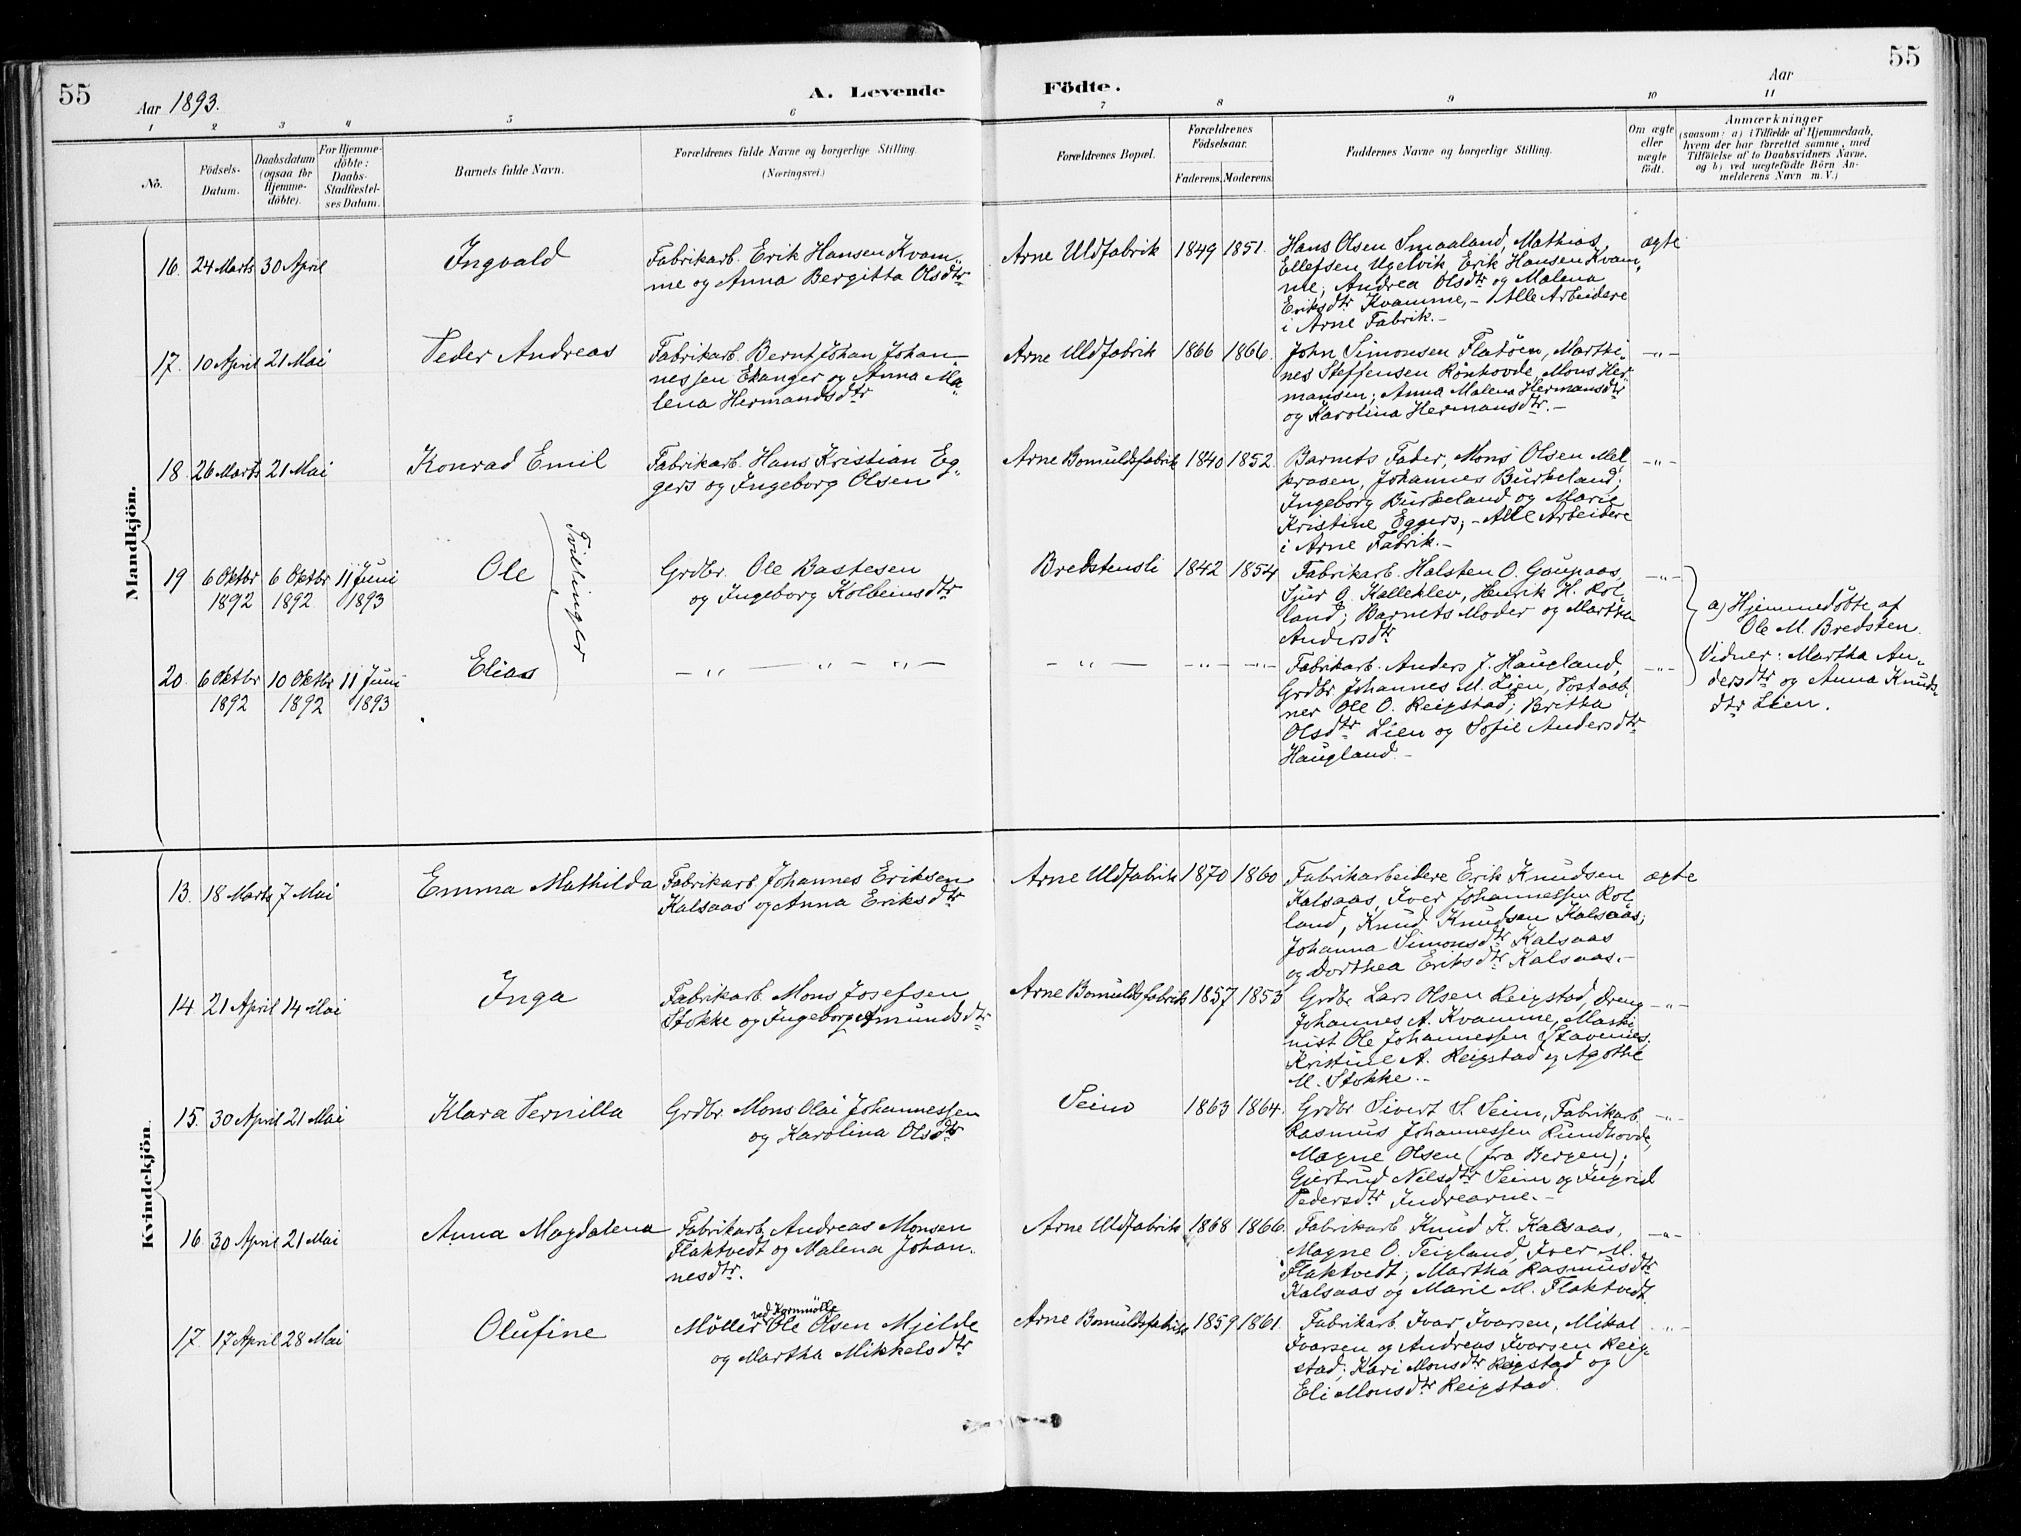 55
Aar 1893.
A. Levende
Födte.
Aar
55
1 2 3 4 5 6 7 8 9 10 11
No.
Födsels-
Datum.
Daabsdatum
(ogsaa for
Hjemme-
döbte).
For Hjemme-
döbte:
Daabs-
Stadfæstel-
ses Datum.
Barnets fulde Navn.
Forældrenes fulde Navne og borgerlige Stilling.
(Næringsvei.)
Forældrenes Bopæl.
Forældrenes
Födselsaar.
Faderens. Moderens.
Faddernes Navne og borgerlige Stilling.
Om ægte
eller
uægte
födt.
Anmærkninger
(saasom: a) i Tilfælde af Hjemmedaab,
hvem der har forrettet samme, med
Tilföielse af to Daabsvidners Navne,
og b) ved uægtefödte Börn An-
melderens Navn m. V.)
Mandkjön.
16. 24 Marts 30 April
Ingvald
Fabrikarb. Erik Hansen Kvam-
me og Anna Bergitta Olsdtr
Arne Uldfabrik 1849 1851.
Hans Olsen Smaaland, Mathias
Ellefsen Ugelvik, Erik Hansen Kvam-
me; Andrea Olsdtr og Malena
Eriksdtr Kvamme, - Alle Arbeidere
i Arne Fabrik.-
ægte
17. 10 April 21 Mai
Peder Andreas
Fabrikarb. Bernt Johan Johan-
nessen Ekanger og Anna Ma-
lena Hermandsdtr
Arne Uldfabrik 1866 1866.
John Simonsen Flatøen, Marthi-
nes Steffensen Rönhovde, Mons Her-
mansen; Anna Malena Hermansdtr
og Karolina Hermansdtr.-
-"-
18. 26 Marts 21 Mai
Konrad Emil
Fabrikarb. Hans Kristian Eg-
gers og Ingeborg Olsen
Arne Bomuldsfabrik 1840 1852.
Barnets Fader, Mons Olsen Mel
kraaen, Johannes Burkeland;
Ingeborg Burkeland og Marie
Kristine Eggers; - Alle Arbeidere
i Arne Fabrik.-
-"-
19 6 Oktbr 1892 6 Oktbr 1892 11 Juni 1893
Ole
Tvillinger
Grdbr. Ole Bastesen
og Ingeborg Kolbeinsdtr
Bredstensli 1842 1854
Fabrikarb. Halsten O. Gaupaas,
Sjur O. Kalleklev, Henrik H. Rol-
land; Barnets Moder og Martha
Andersdtr
-"-
a) Hjemmedöbte af
Ole M. Bredsten.
Vidner: Martha An-
dersdtr og Anna Knuds-
dtr Lien.
20. 6 Oktbr 1892 10 Oktbr 1892 11 Juni 1893
Elias
-"- -"- -"-
-"- -"- -"-
Fabrikarb. Anders J. Haugland,
Grdbr Johannes M. Lien, Postaab-
ner Ole O. Reigstad; Britha
Olsdtr Lien og Sofie Andersdtr
Haugland.-
-"-
Kvindekjön.
13. 18 Marts 7 Mai
Emma Mathilda
Fabrikarb. Johannes Eriksen
Kalsaas og Anna Eriksdtr
Arne Uldfabrik 1870 1860
Fabrikarbeidere Erik Knudsen
Kalsaas, Iver Johannessen Rol-
land, Knud Knudsen Kalsaas;
Johanna Simonsdtr Kalsaas
og Dorthea Eriksdtr Kalsaas.-
ægte
14. 21 April 14 Mai
Inga
Fabrikarb. Mons Josefsen
Stokke og Ingeborg Amundsdtr
Arne Bomuldsfabrik 1857 1853
Grdbr Lars Olsen Reigstad, Dreng
Johannes A. Kvamme, Maski-
nist Ole Johannessen Stavenes;
Kristine A. Reigstad og Agothe
M. Stokke.-
-"-
15. 30 April 21 Mai
Klara Pernilla
Grdbr Mons Olai Johannessen
og Karolina Olsdtr
Seim 1863 1864.
Grdbr Sivert S. Seim, Fabrikarb.
Rasmus Johannessen Rundhovde,
Magne Olsen (fra Bergen);
Gjertrud Nilsdtr Seim og Ingrid
Pedersdtr Indrearne.-
-"-
16. 30 April 21 Mai
Anna Magdalena
Fabrikarb. Andreas Monsen
Flaktvedt og Malena Johan-
nesdtr.
Arne Uldfabrik 1868 1866.
Fabrikarb. Knud K. Kalsaas,
Magne O. Teigland, Iver M.
Flaktvedt; Martha Rasmusdtr
Kalsaas og Marie M. Flaktvedt.
-"-
17. 17 April 28 Mai
Olufine
ved Kornmölle
Møller Ole Olsen Mjelde
og Martha Mikkelsdtr
Arne Bomuldsfabrik 1859 1861.
Fabrikarb. Ivar Ivarsen, Mikal
Ivarsen og Andreas Ivarsen Reig-
stad; Kari Monsdtr Reigstad og
Eli Monsdtr Reigstad.
-"-